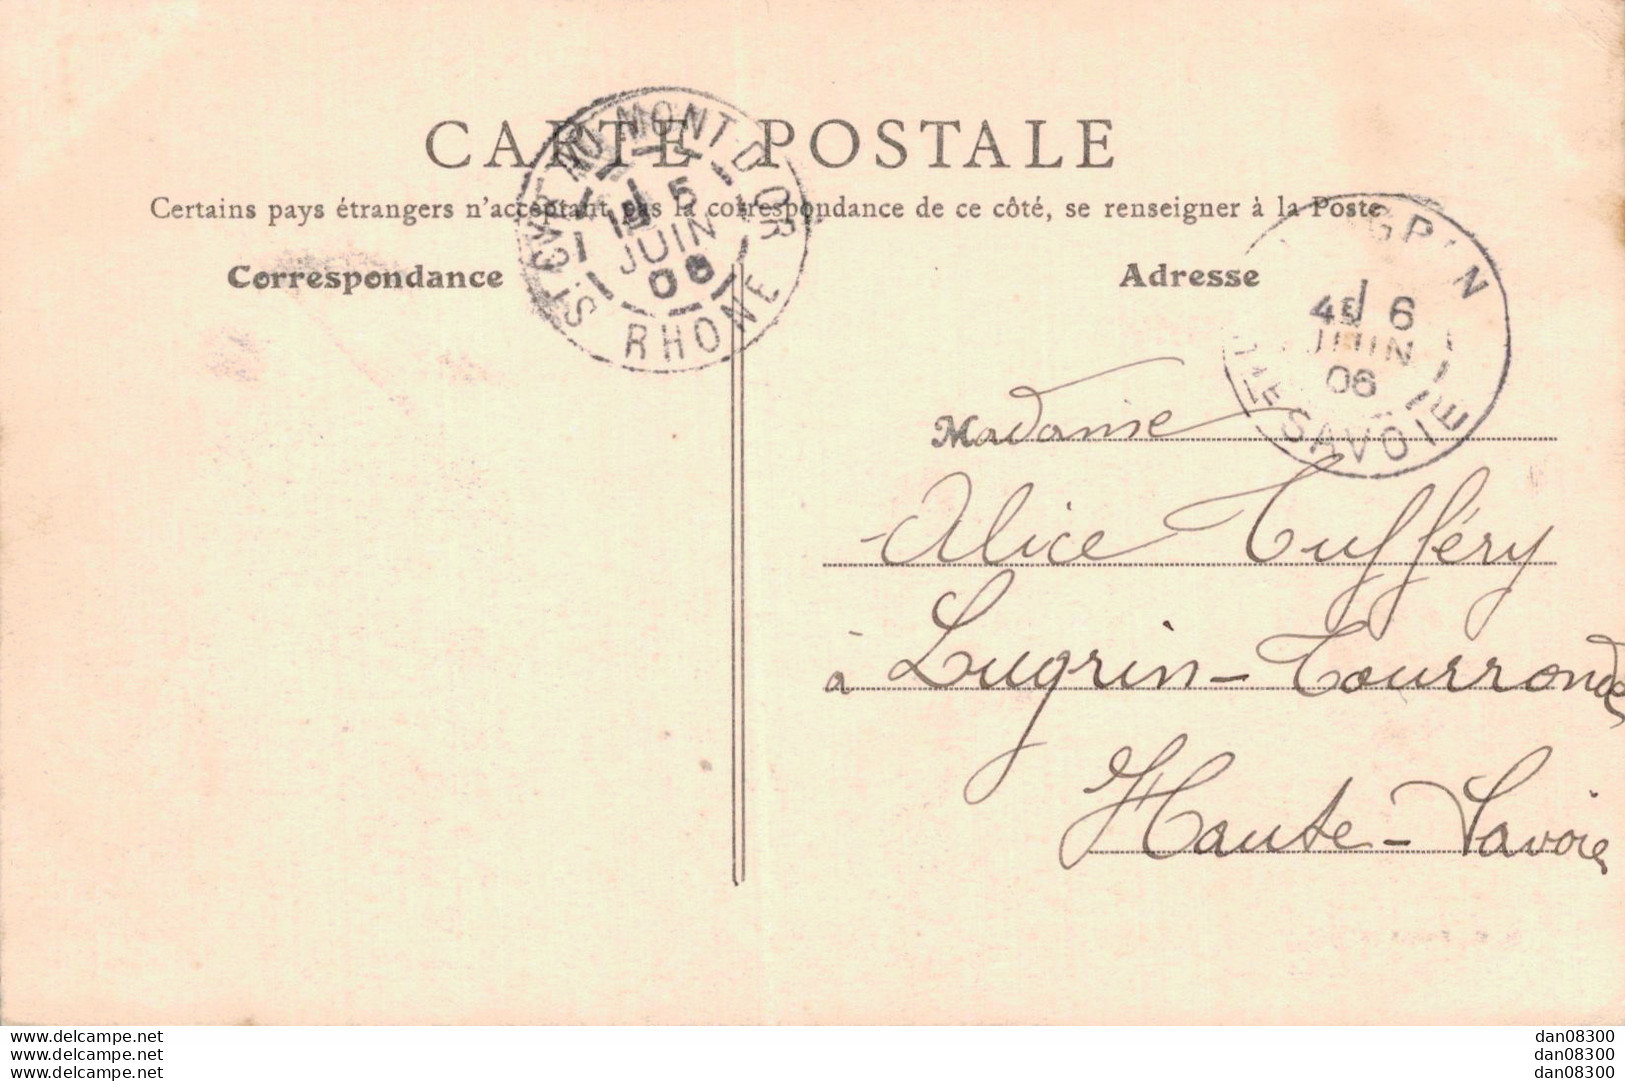 CARTE POSTALE
Certains pays étrangers n'acceptant pas la correspondance de ce côté, se renseigner à la Poste
Correspondance
Adresse
ST CYR AU MONT D'OR
1E 5
JUIN
06
RHONE
4E 6
JUIN
06
HTE SAVOIE
Madame
Alice Tufféry
à Lugrin-Tourronde
Haute-Savoie
www.delcampe.net dan08300
www.delcampe.net dan08300
www.delcampe.net dan08300